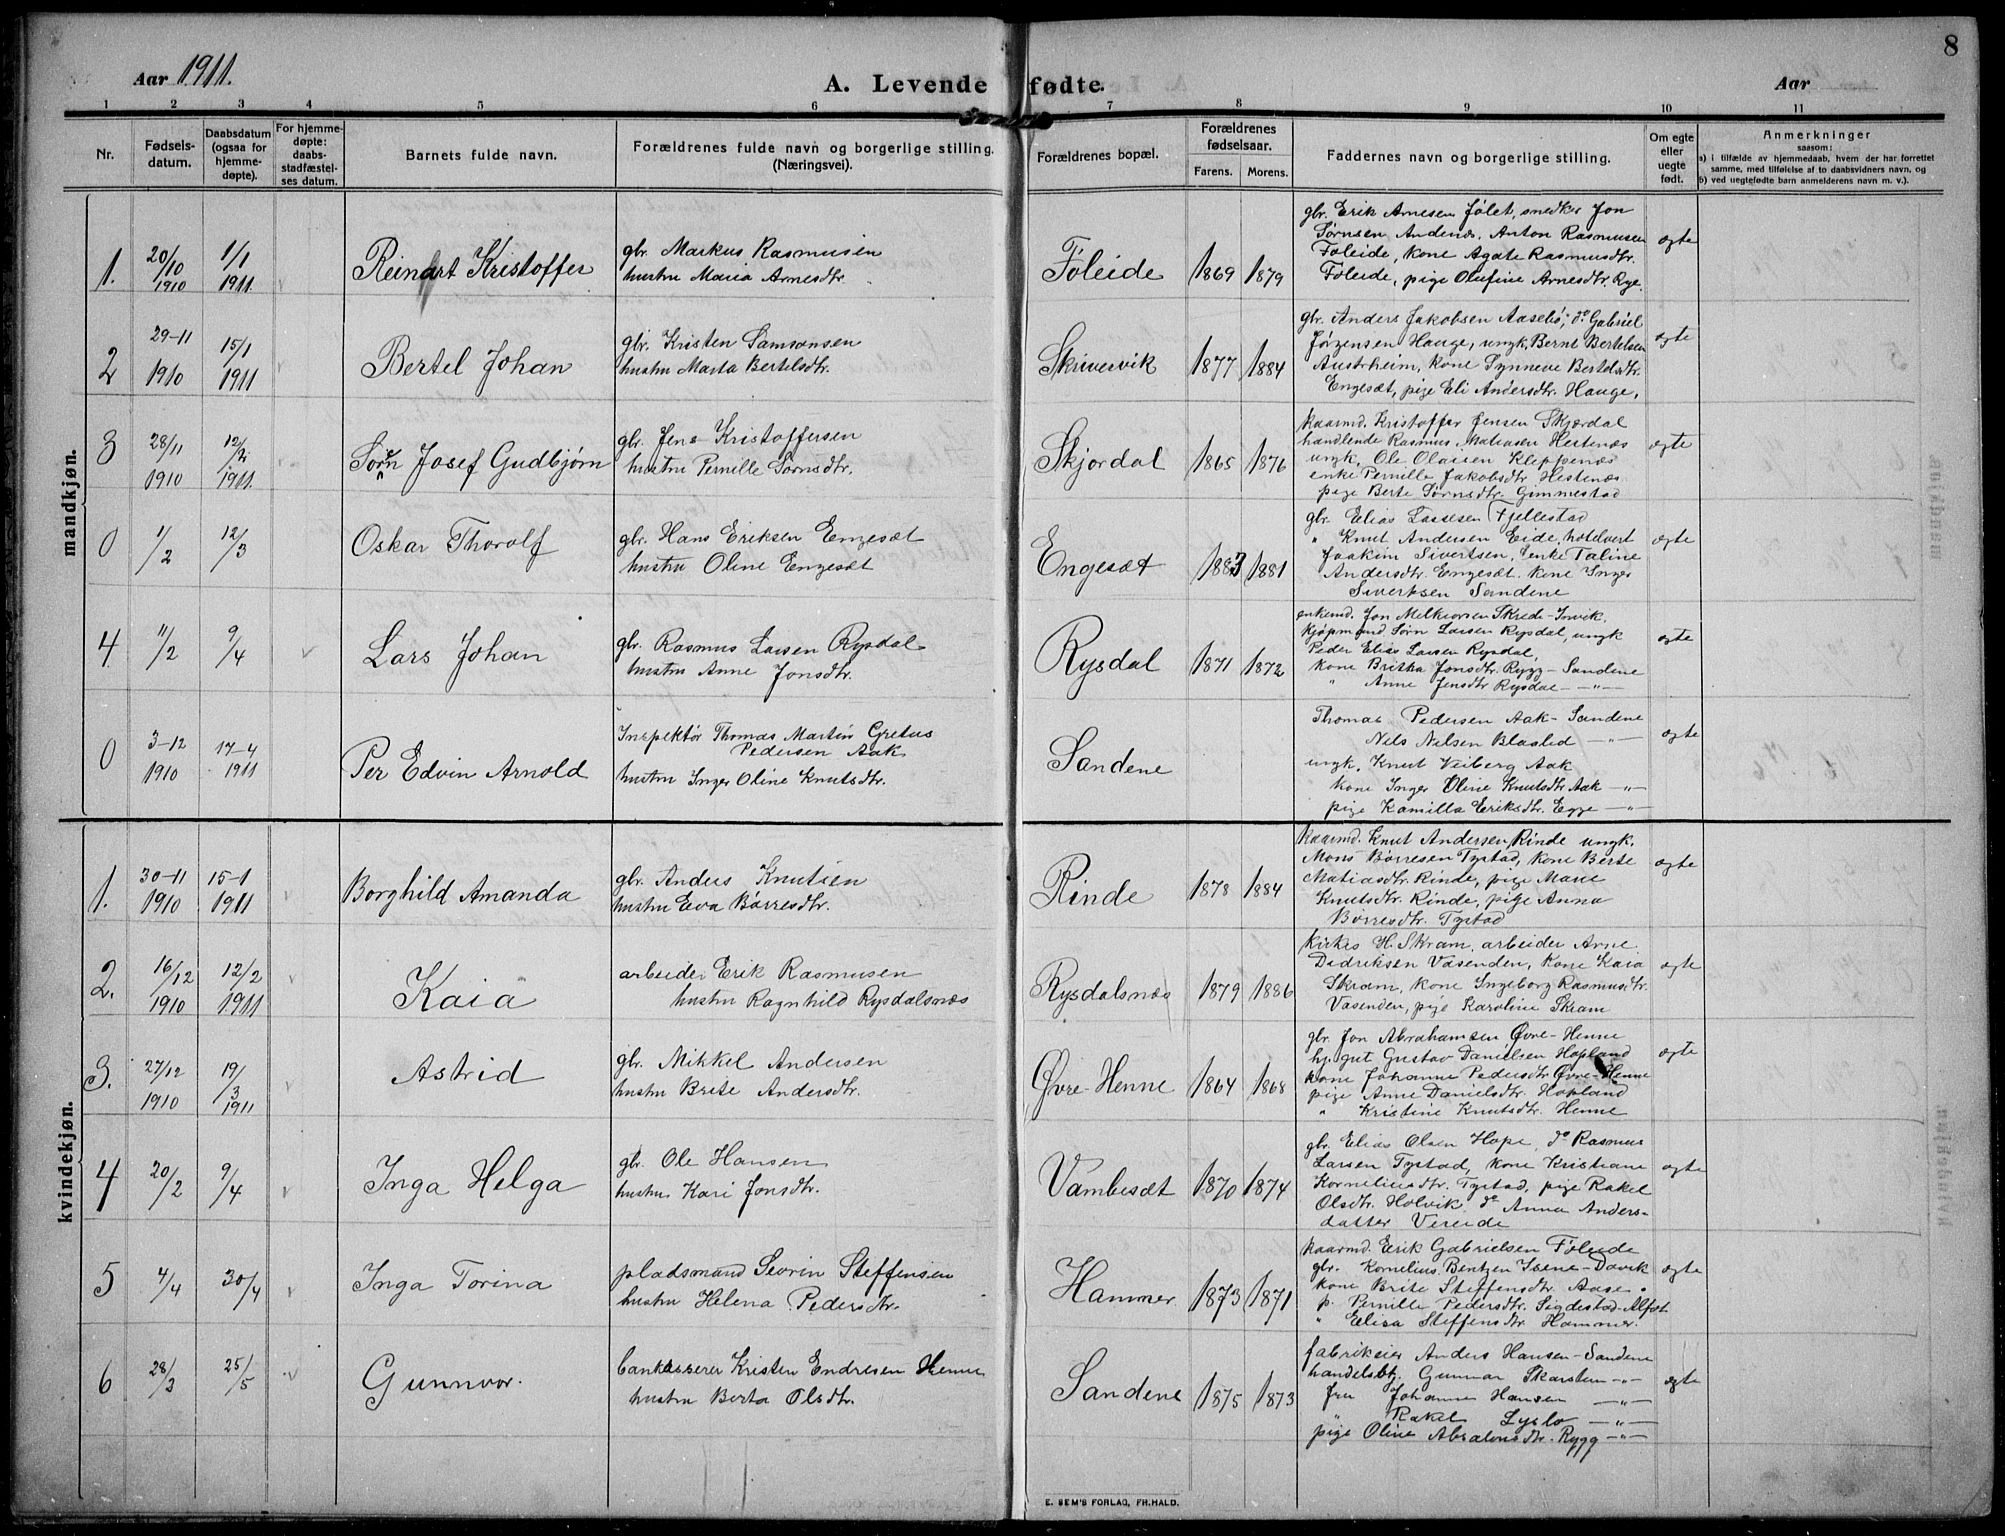 8
Aar 1911.
A. Levende fødte.
Aar
1 2 3 4 5 6 7 8 9 10 11
Nr.
Fødsels-
datum.
Daabsdatum
(ogsaa for
hjemme-
døpte).
For hjemme-
døpte:
daabs-
stadfæstel-
ses datum.
Barnets fulde navn.
Forældrenes fulde navn og borgerlige stilling.
(Næringsvei).
Forældrenes bopæl.
Forældrenes
fødselsaar.
Farens. Morens.
Faddernes navn og borgerlige stilling.
Om egte
eller
uegte
født.
Anmerkninger
saasom:
a) i tilfælde av hjemmedaab, hvem der har forrettet
samme, med tilføielse af to daabsvidners navn, og
b) ved uegtefødte barn anmelderens navn m. v.).
mandkjøn.
1. 20/10 1910 1/1 1911. Reinart Kristoffer
gbr. Markus Rasmussen
hustru Maria Arnesdtr.
Føleide 1869 1879
gbr. Erik Arnesen Følet, snedker Jon
Sørnsen Andenæs, Anton Rasmussen
Føleide, kone Agate Rasmusdtr.
Føleide, pige Olufine Arnesdtr. Rye.
egte
2 29-11 1910 15/1 1911 Bertel Johan
gbr. Kristen Samsonsen
hustru Marta Bertelsdtr.
Skrivesvik 1877 1884
gbr. Anders Jakobsen Aasebø, do Gabriel
Jørgensen Hauge, ungk. Bernt Bertelsen
Austrheim, kone Synneve Bertelsdtr.
Engesæt, pige Eli Andersdtr. Hauge.
egte
3 28/11 1910 12/2 1911. Søren Josef Gudbjørn
gbr. Jens Kristoffersen
hustru Pernille Sørnsdtr.
Skjørdal 1865 1876
kaarmd. Kristoffer Jensen Skjærdal
handlende Rasmus Matiasen Hestenæs
ungk. Ole Olaisen Kleppenæs
enke Pernille Jakobsdtr. Hestenæs
pige Berte Sørnsdtr. Gimmestad
egte
0 1/2 12/3 Oskar Thorolf
gbr. Hans Eriksen Engesæt
hustru Oline Engesæt
Engesæt 1883 1881
gbr. Elias Lassesen Fjellestad
" Knut Andersen Eide, hotelvert
Joakim Sivertsen, enke Taline
Andersdtr. Engesæt. kone Inger
Sivertsen Sandene
egte
4 11/2 9/4 Lars Johan
gbr. Rasmus Larsen Rysdal
hustru Anne Jonsdtr.
Rysdal 1871 1872
enkemd. Jon Melkiorsen Skrede-Invik,
kjøpmand Sørn Larsen Rysdal, ungk
Peder Elias Larsen Rysdal,
kone Britha Jonsdtr. Rygg - Sandene
" Anne Jensdtr Rysdal - " -
egte
0 3-12 1910 17-4 1911 Per Edvin Arnold
Inspektør Thomas Martin Gretus
Pedersen Aak
hustru Inger Oline Knutsdtr.
Sandene
Thomas Pedersen Aak - Sandene
Nils Nilsen Blaalid - " -
ungk. Knut Veiberg Aak
kone Inger Oline Knutsdtr Aak - " -
pige Kamilla Eriksdtr. Egge - " -
egte
kvindekjøn.
1. 30-11 1910 15-1 1911 Borghild Amanda
gbr. Anders Knutsen
hustru Eva Børresdtr.
Rinde 1878 1884
kaarmd. Knut Andersen Rinde ungk.
Mons Børresen Tystad, kone Berte
Matiasdtr. Rinde, pige Marie
Knutsdtr. Rinde, pige Anna
Børresdtr. Tystad
egte
2. 16/12 1910 12/2 1911 Kaia
arbeider Erik Rasmusen
hustru Ragnhild Rysdalsnæs
Rysdalsnæs 1879 1886
kirkes H. Skram, arbeider Arne
Didriksen Vasenden, kone Kaia
Skram, kone Ingeborg Rasmusdtr.
Vasenden, pige Karoline Skram
egte
3. 27/12 1910 19/3 1911 Astrid
gbr. Mikkel Andersen
hustru Brite Andersdtr.
Øvre-Henne 1864 1868
gbr. Jon Abrahamsen Øvre-Henne
hj. gut Gustav Danielsen Hopland
kone Johanne Pedersdtr Øvre-Henne
pige Anne Danielsdtr. Hopland
" Kristine Knutsdtr. Henne
egte
4 20/2 9/4 Inga Helga
gbr. Ole Hansen
hustru Kari Jonsdtr.
Vambesæt 1870 1874
gbr. Elias Olsen Hope, do Rasmus
Larsen Tystad, kone Kristiane
Korneliusdtr. Tystad, pige Rakel
Olsdtr. Holvik do Anna Anders-
datter Vereide
egte
5 4/4 30/4 Inga Torina
pladsmand Severin Steffensen
hustru Helena Pedersdtr.
Hammer 1873 1871
kaarmd. Erik Gabrielsen Føleide
gbr. Kornelius Bentzen Isene-Davik
kone Brite Steffensdtr. Aase.
p. Pernille Pedersdtr. Sigdestad-Alfot
" Elisa Steffensdtr Hammer.
egte
6 28/3 25/5 Gunnvor.
bankkasserer Kristen Endresen Henne
hustru Berta Olsdtr.
Sandene 1875 1873
fabrikeier Anders Hansen - Sandene
handelsbtj. Gunnar Skarstein - " -
fru Johanne Hansen - " -
" Rakel Lyslo - " -
pige Oline Absalonsdtr. Rygg - " -
egte
E. SEM'S FORLAG, FR.HALD.